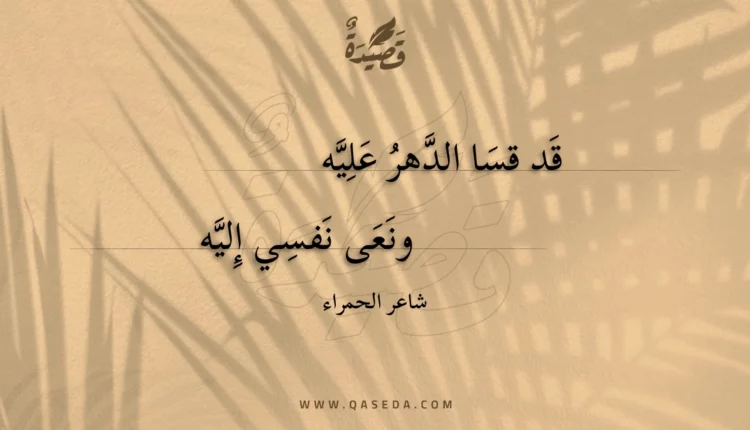 قَصِيْدَةٌ
قَد قسَا الدَّهرُ عَلِيَّه
ونَعَى نَفسِي إِليَّه
شاعر الحمراء
WWW.QASEDA.COM